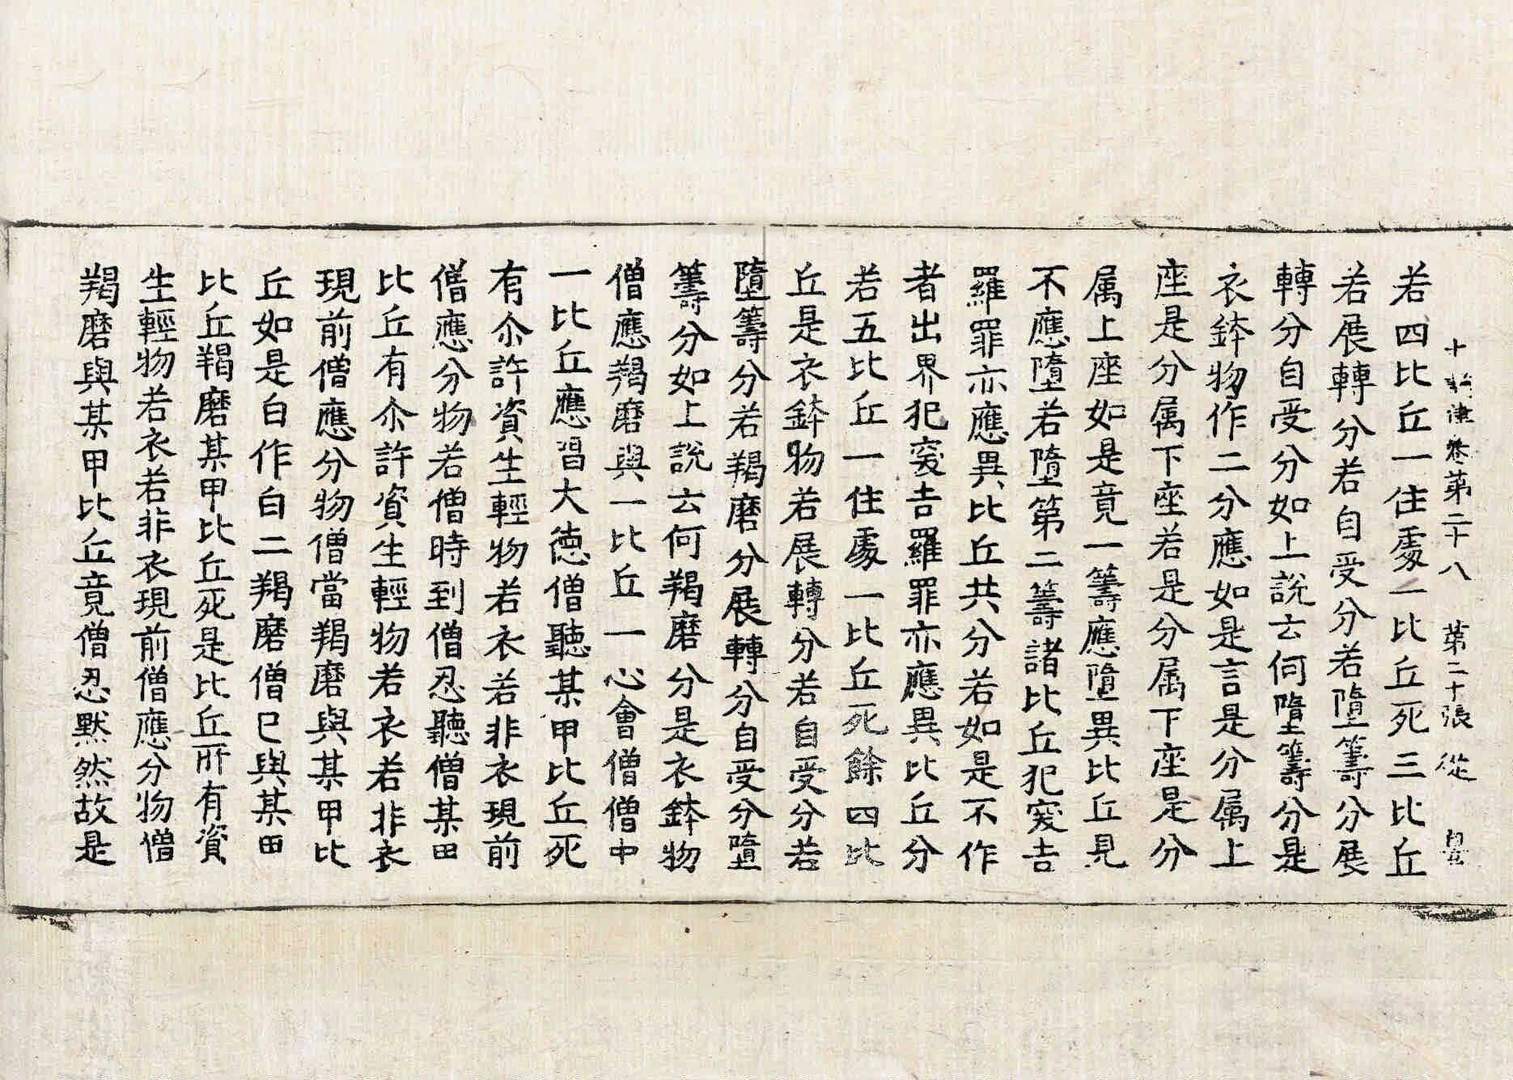 十誦律卷第二十八 第二十張 從
若四比丘一住處一比丘死三比丘
若展轉分若自受分若墮籌分展
轉分自受分如上說云何墮籌分是
衣鉢物作二分應如是言是分属上
座是分属下座若是分属下座是分
属上座如是竟一籌應墮異比丘見
不應墮若墮第二籌諸比丘犯突吉
羅罪亦應異比丘共分若如是不作
者出界犯突吉羅罪亦應異比丘分
若五比丘一住處一比丘死餘四比
丘是衣鉢物若展轉分若自受分若
墮籌分若羯磨分展轉分自受分墮
籌分如上說云何羯磨分是衣鉢物
僧應羯磨與一比丘一心會僧僧中
一比丘應習大德僧聽某甲比丘死
有尒許資生輕物若衣若非衣現前
僧應分物若僧時到僧忍聽僧某田
比丘有尒許資生輕物若衣若非衣
現前僧應分物僧當羯磨與某甲比
丘如是白作白二羯磨僧已與某田
比丘羯磨某甲比丘死是比丘所有資
生輕物若衣若非衣現前僧應分物僧
羯磨與某甲比丘竟僧忍默然故是